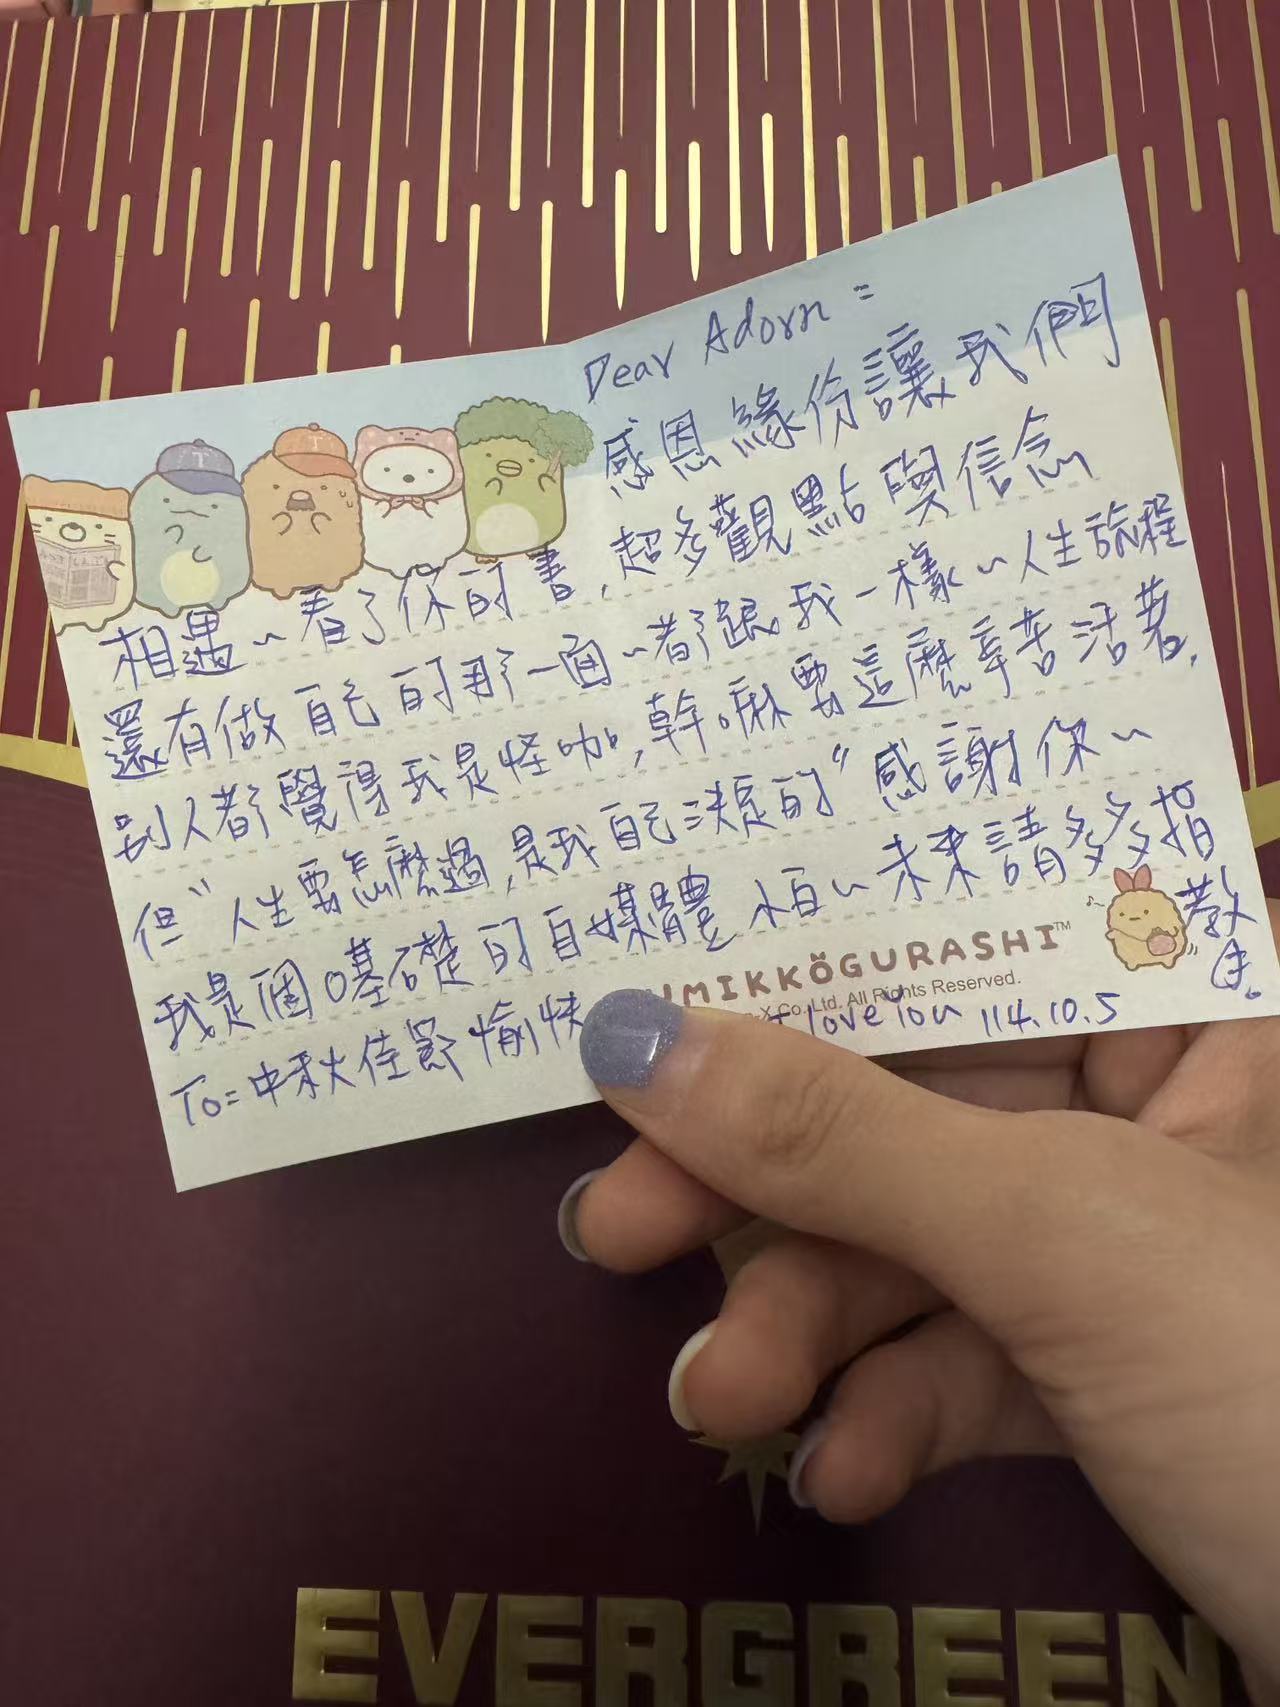 Dear Adorn =
感恩緣份讓我們
相遇~看了你的書,超多觀點與信念
還有做自己的那一面~都跟我一樣~人生旅程
別人都覺得我是怪咖,幹嘛要這麼辛苦活著,
但"人生要怎麼過,是我自己決定的"感謝你~
我是個嘿礎的自媒體 ~未來請多多指
教
To=中秋佳節愉快
UMIKKOGURASHI™
Co., Ltd. All Rights Reserved.
I love You 114.10.5
EVERGREEN